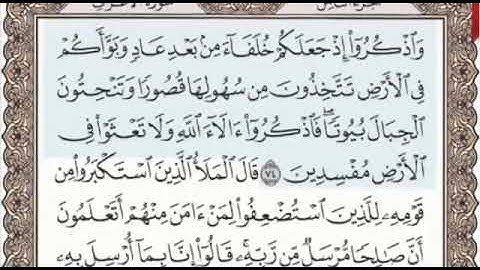 سورة الأعراف الجزء الثامن
وَاذْكُرُوا إِذْ جَعَلَكُمْ خُلَفَاءَ مِنْ بَعْدِ عَادٍ وَبَوَّأَكُمْ
فِي الْأَرْضِ تَتَّخِذُونَ مِن سُهُولِهَا قُصُورًا وَتَنْحِتُونَ
الْجِبَالَ بُيُوتًا ۖ فَاذْكُرُوا آلَاءَ اللَّهِ وَلَا تَعْثَوْا فِي
الْأَرْضِ مُفْسِدِينَ ٧٤ قَالَ الْمَلَأُ الَّذِينَ اسْتَكْبَرُوا مِن
قَوْمِهِ لِلَّذِينَ اسْتُضْعِفُوا لِمَنْ آمَنَ مِنْهُمْ أَتَعْلَمُونَ
أَنَّ صَالِحًا مُّرْسَلٌ مِّن رَّبِّهِ ۚ قَالُوا إِنَّا بِمَا أُرْسِلَ بِهِ